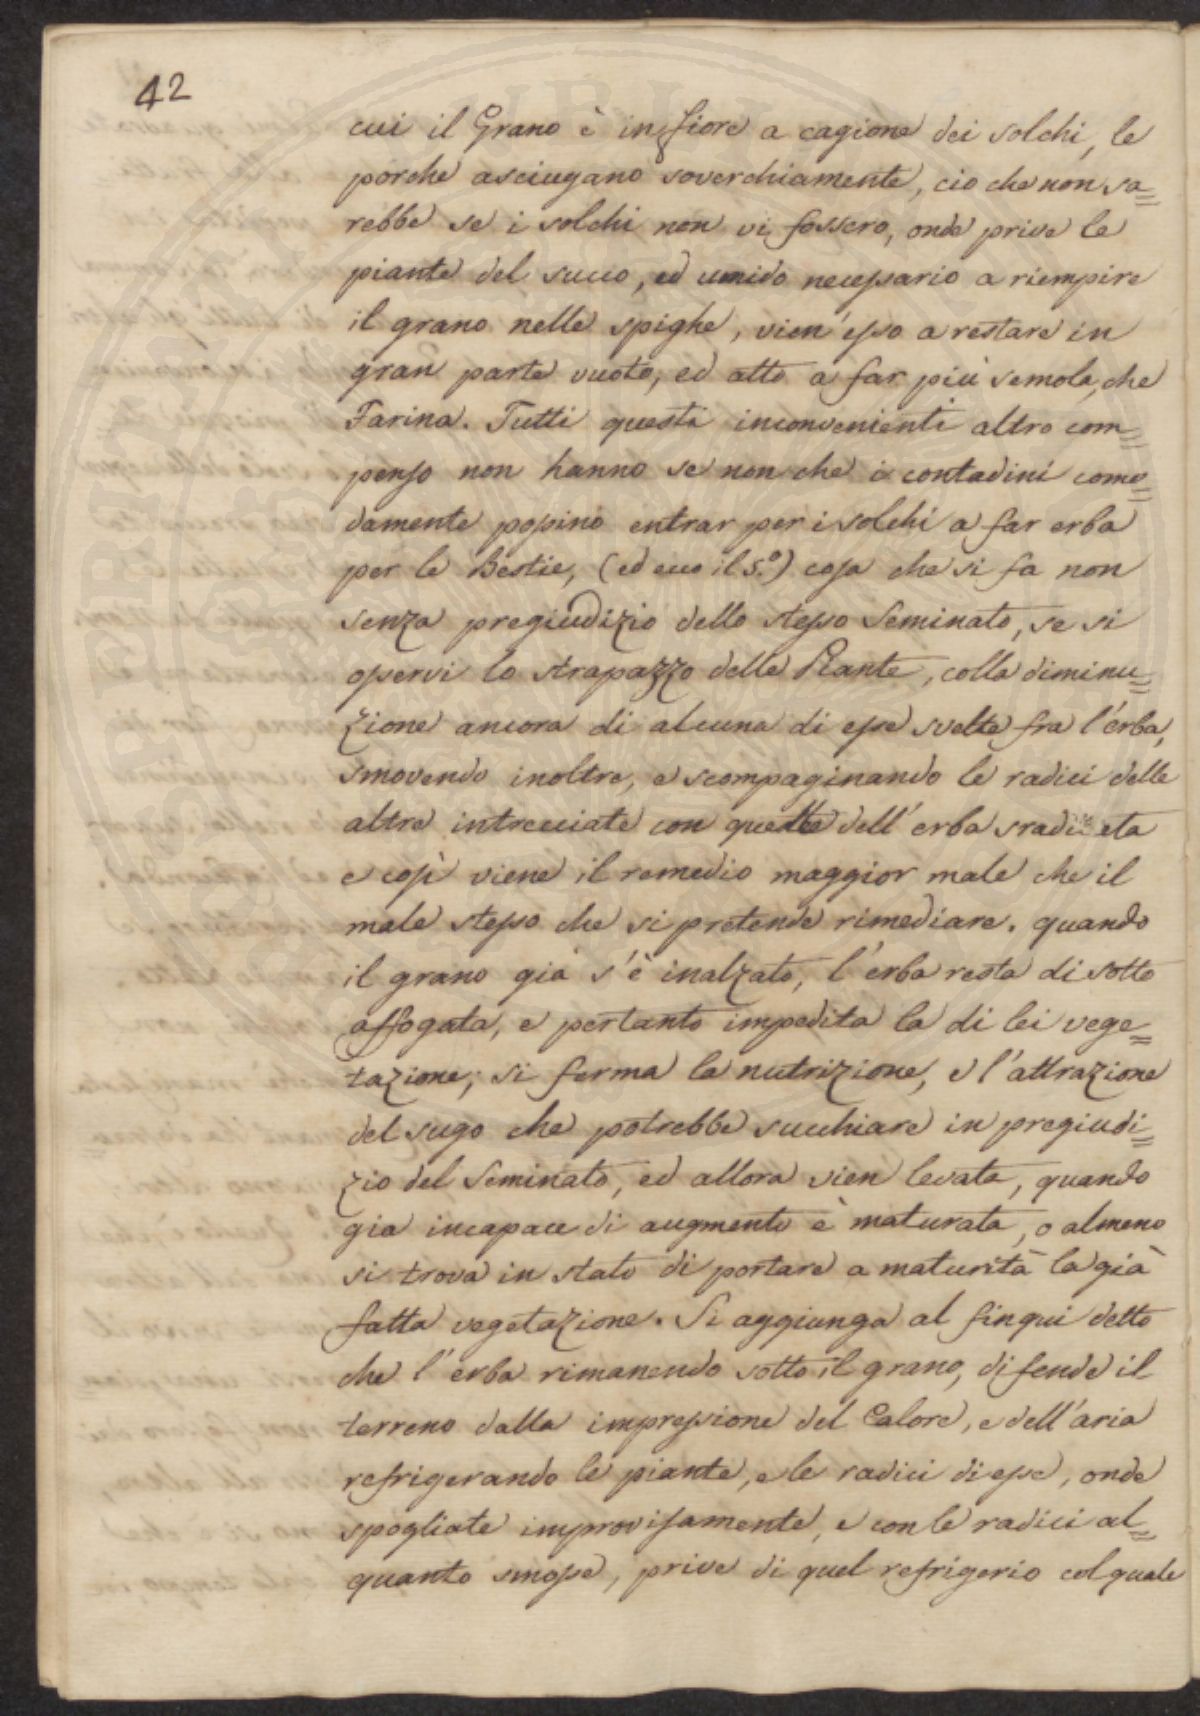 42
cui il Grano è in fiore a cagione dei solchi, le
porche asciugano soverchiamente, cio che non sa=
rebbe se i solchi non vi fossero, onde prive le
piante del succo, ed umido necessario a riempire
il grano nelle spighe, vien' esso a restare in
gran parte vuoto, ed atto a far più semola, che
Farina. Tutti questi inconvenienti altro com=
penso non hanno se non che i contadini como=
damente possino entrar per i solchi a far erba
per le Bestie, (ed ecco il 5.º) cosa che si fa non
senza pregiudizio dello stesso Seminato, se si
osservi lo strapazzo delle Piante, colla diminu=
zione ancora di alcuna di esse svelte fra l'erba,
smovendo inoltre, e scompaginando le radici delle
altre intrecciate con quelle dell' erba
e così viene il remedio maggior male che il
male stesso che si pretende rimediare. quando
il grano già s'è inalzato, l'erba resta di sotto
affogata, e pertanto impedita la di lei vege=
tazione; si ferma la nutrizione, e l'attrazione
del sugo che potrebbe succhiare in pregiudi=
zio del Seminato, ed allora vien levata, quando
gia incapace di augmento è maturata, o almeno
si trova in stato di portare a maturità la già
fatta vegetazione. Si aggiunga al finqui detto
che l' erba rimanendo sotto il grano, difende il
terreno dalla impressione del Calore, e dell'aria
refrigerando le piante, e le radici di esse, onde
spogliate improvisamente, e con le radici al=
quanto smosse, prive di quel refrigerio col quale